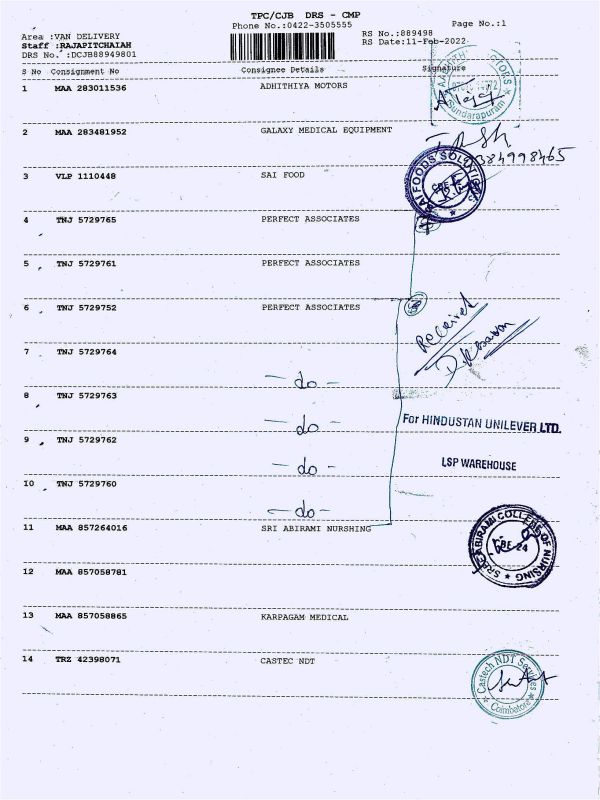 TPC/CJB DRS - CMP
Phone No.:0422-3505555
Page No.:1
RS No.:889498
RS Date:11-Feb-2022
Area :VAN DELIVERY
Staff :RAJAPITCHAIAH
DRS No. :DCJB88949801
S No Consignment No Consignee Details Signature
1 MAA 283011536 ADHITHIYA MOTORS
Sundarapuram
2 MAA 283481952 GALAXY MEDICAL EQUIPMENT
3 VLP 1110448 SAI FOOD
SAI FOODS SOLUTIONS
4 TNJ 5729765 PERFECT ASSOCIATES
5 TNJ 5729761 PERFECT ASSOCIATES
6 TNJ 5729752 PERFECT ASSOCIATES
Received
7 TNJ 5729764
- do -
8 TNJ 5729763
- do -
For HINDUSTAN UNILEVER LTD.
9 TNJ 5729762
- do -
LSP WAREHOUSE
10 TNJ 5729760
- do -
11 MAA 857264016 SRI ABIRAMI NURSHING
ABIRAMI COLLEGE OF NURSING
CBE-24
12 MAA 857058781
13 MAA 857058865 KARPAGAM MEDICAL
14 TRZ 42398071 CASTEC NDT
Castech NDT Services
Coimbatore